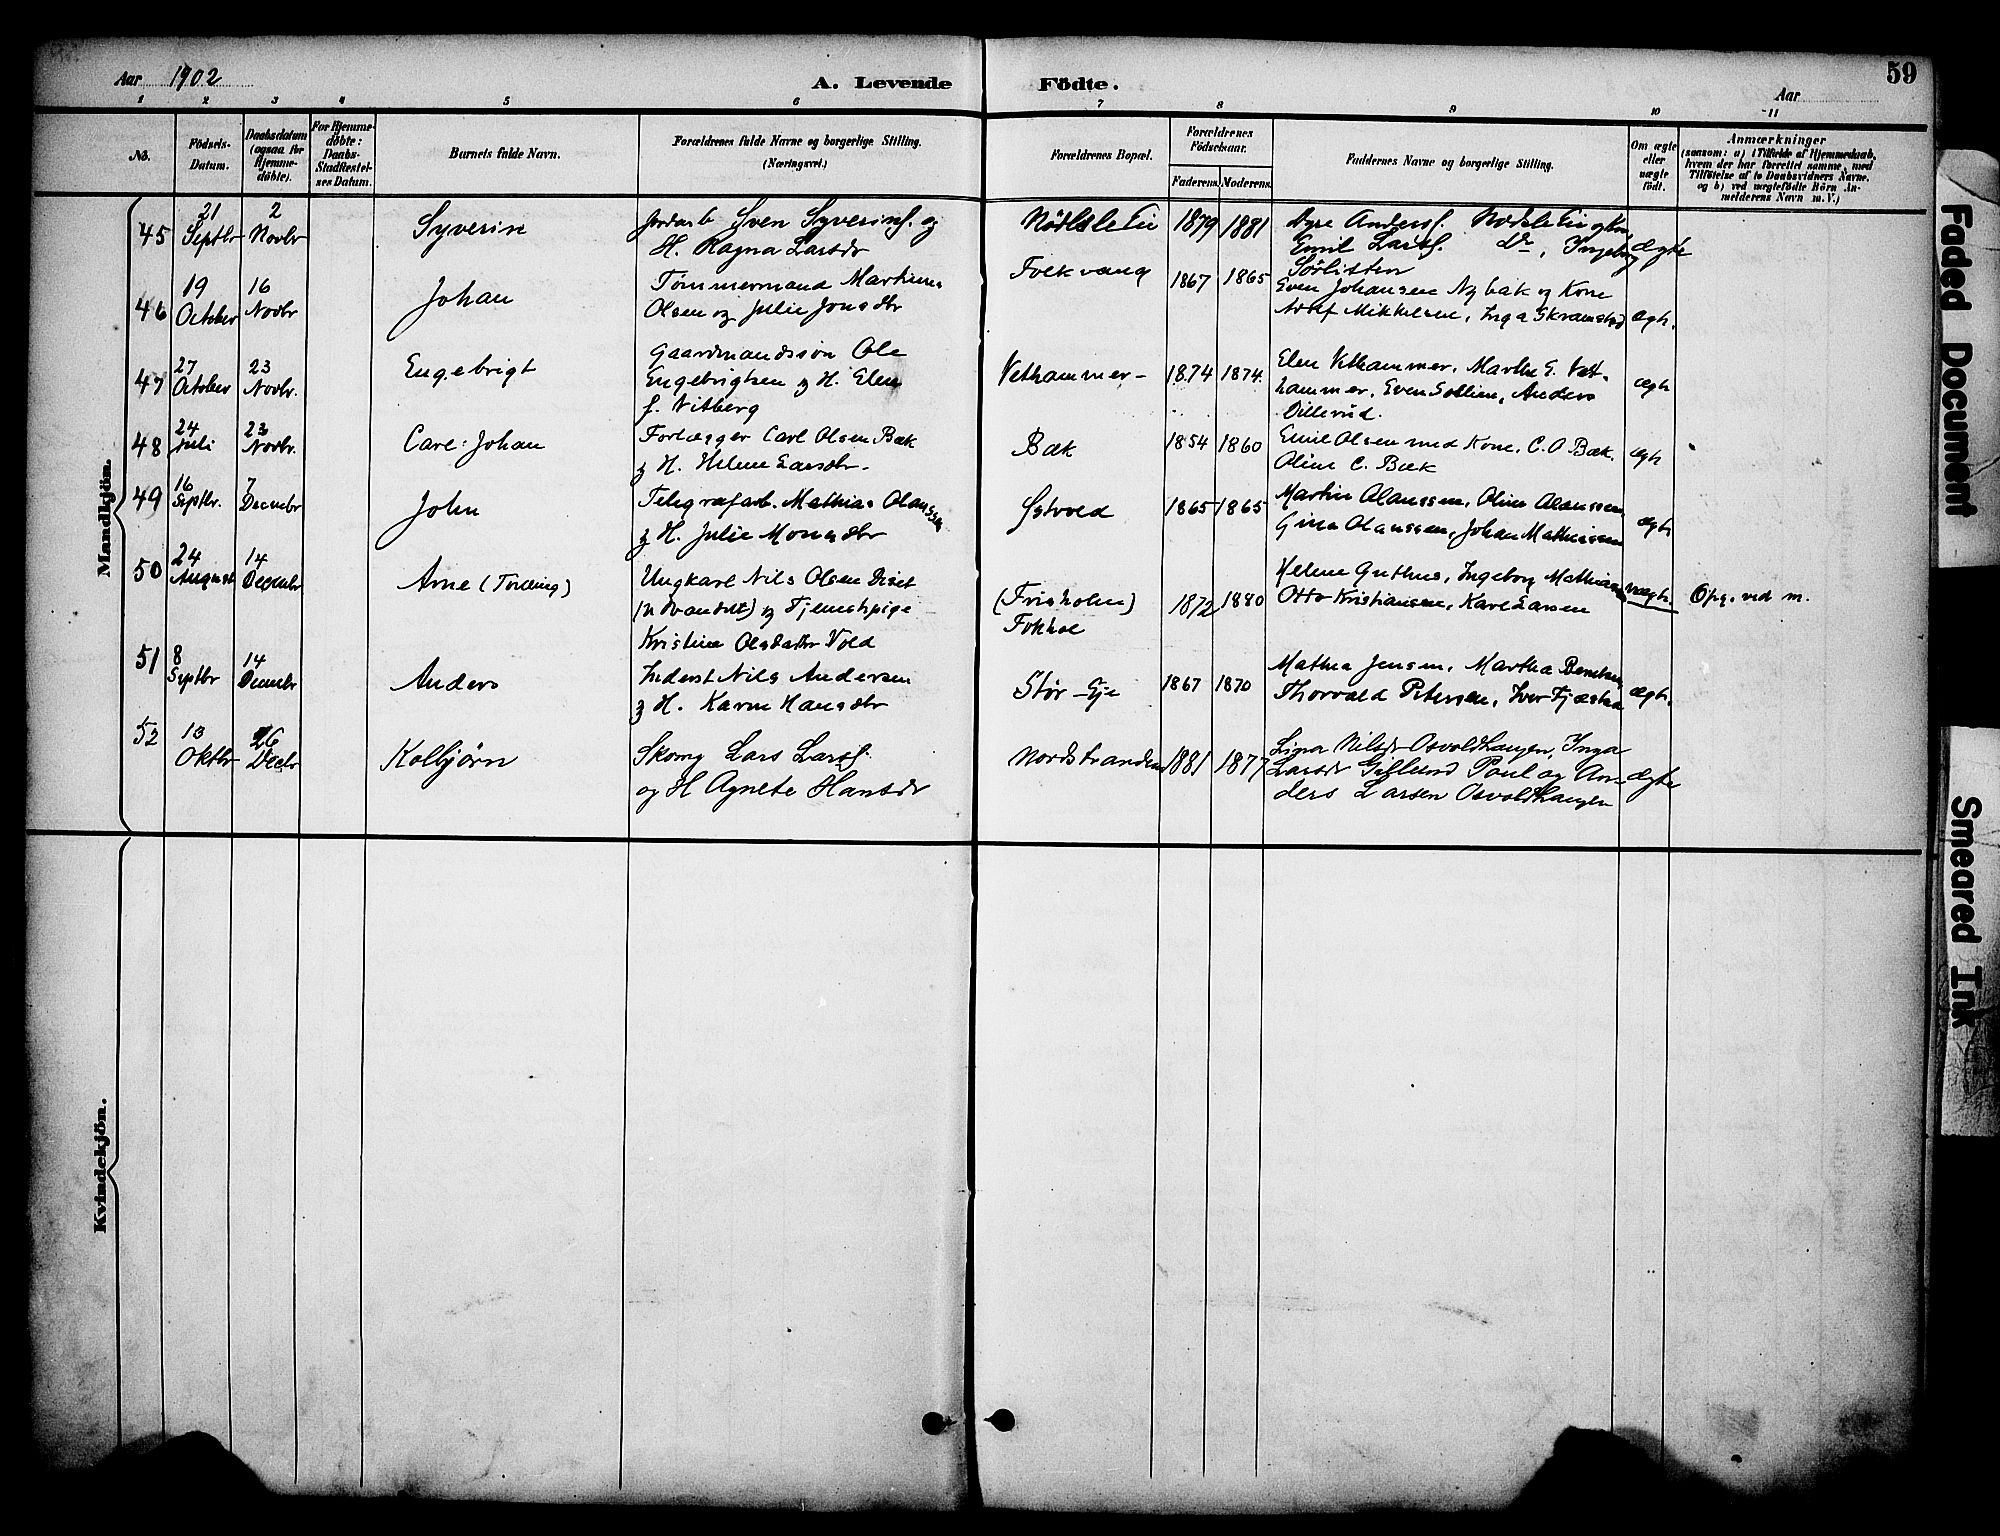 Aar 1902
A. Levende Födte.
59
Aar
1 2 3 4 5 6 7 8 9 10 11
No.
Födsels-Datum.
Daabsdatum (ogsaa for Hjemme-döbte).
For Hjemme-döbte: Daabs-Stadfæstel-ses Datum.
Barnets fulde Navn.
Forældrenes fulde Navne og borgerlige Stilling. (Næringsvei.)
Forældrenes Bopæl.
Forældrenes Födselsaar.
Faderens. Moderens.
Faddernes Navne og borgerlige Stilling.
Om ægte eller uægte födt.
Anmærkninger
(saasom: a) i Tilfælde af Hjemmedaab,
hvem der har forrettet samme, med
Tilföielse af to Daabsvidners Navne,
og b) ved uægtefödte Börn An-
melderens Navn m. V.)
Mandkjön.
45 21 Septbr 2 Novbr Syverin
Jordarb Sven Syverins. og
H. Ragna Larsdr
1879 1881
Emil Larss. Do, Ingeborg
Sørlisten
ægte
46 19 October 16 Novbr Johan
Tømmermand Martinus
Olsen og Julie Jonsdtr
Folkvang 1867 1865
Even Johansen Nybak og Kone
Adolf Mikkelsen, Inga Skramstad
ægte.
47 27 October 23 Novbr. Engebrigt
Gaardmandssøn Ole
Engebrigtsen og H. Elen
f. Vitberg
Vethammer 1874 1874
Elen Vethammer, Marthe E. Vet-
hammer, Even Sollien, Anders
Dillerud.
ægte
48 24 Juli 23 Novbr. Carl Johan
Forlægger Carl Olsen Bæk
og H. Helene Larsdtr.
Bæk 1854 1860
Emil Olsen med Kone, C. O Bæk.
Oline C. Bæk
ægte
49 16 Septbr. 7 Decembr John
Telegrafarb. Mathias Olaussen
og H. Julie Monsdtr
Østvold 1865 1865
Martin Olaussen, Oline Olaussen
Gina Olaussen, Johan Mathissen
ægte
50 24 August 14 Decembr Arne (Tvilling)
Ungkarl Nils Olsen Diset
(udvandret) og Tjenestepige
Kristine Olsdatter Vold
(Frisholm)
1872 1880
Helene Guthus, Ingeborg Mathiasen
Otto Kristiansen, Karl Larsen
uægte.
Opg. ved m.
51 8 Septbr 14 Decembr Anders
Inderst Nils Andersen
og H. Karen Hansdtr
Stør-Eje 1867 1870
Mathea Jensen, Martha Berntsen
Thorvald Petersen, Iver Fjæstad
ægte.
52 13 Oktbr 26 Decbr Kolbjørn
Skomg Lars Larss.
og H Agnete Hansdr
Nordstranden 1881 1877
Lina Nilsdr Osvoldhaugen, Inga
Larsdr Gillund Paul og An-
ders Larsen Osvoldhaugen
ægte
Kvindekjön.
Faded Document
Smeared Ink